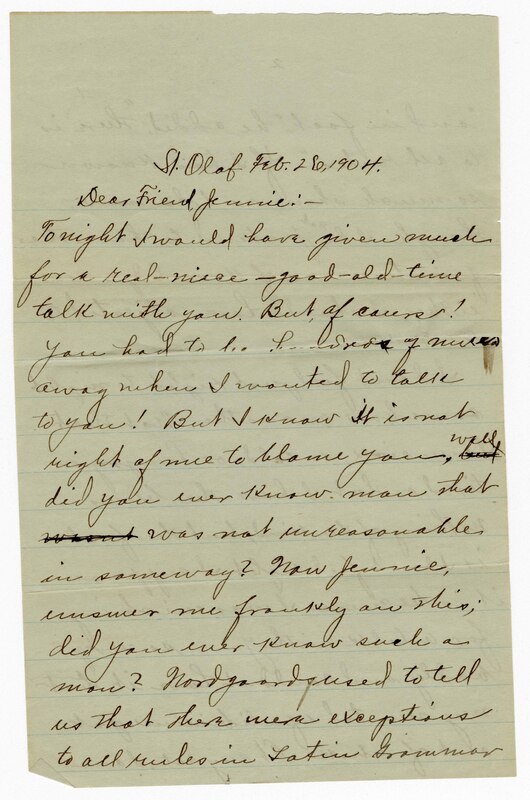 St. Olaf Feb. 28, 1904.
Dear Friend Jennie:-
Tonight I would have given much
for a real-niece-good-old-time
talk with you. But, of cours!
You had to be hundreds of miles
away when I wanted to talk
to you! But I know it is not
right of me to blame you, well
did you ever know man that
wasnt was not unreasonable
in someway? Now Jennie,
answer me frankly on this;
did you ever know such a
man? Nordgaard used to tell
us that there were exceptions
to all rules in Latin Grammar